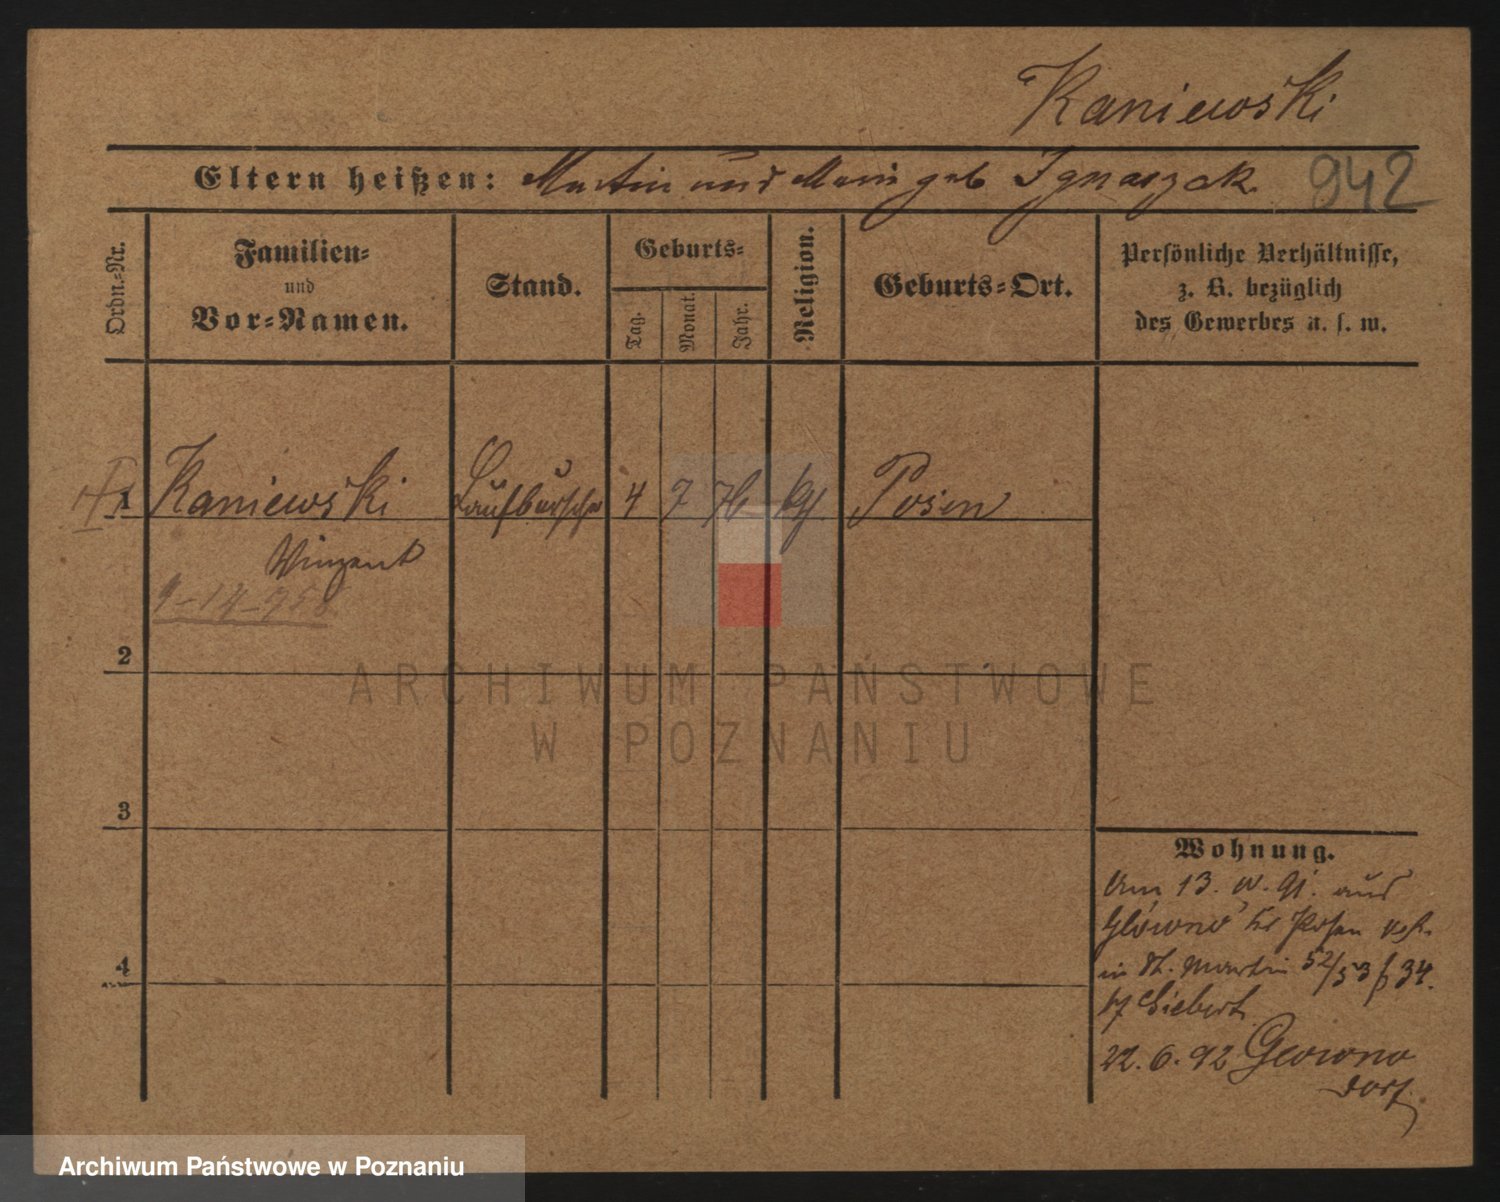 Kaniewski
Eltern heißen: Martin und Marie geb Ignaszak 942
Ordn.=Nr.
Familien=
und
Vor=Namen.
Stand.
Geburts=
Tag.
Monat.
Jahr.
Religion.
Geburts=Ort.
Persönliche Verhältnisse,
z. B. bezüglich
des Gewerbes u. s. w.
1 Kaniewski Laufbursche 4 7 76 kh Posen
Winzent
2
3
4
Wohnung.
Am 13. 91. aus
Glowno Kr Posen
in St. Martin 52/53 34.
Siebert
22. 6. 92 Glowno
Dorf.
ARCHIWUM PAŃSTWOWE
W POZNANIU
Archiwum Państwowe w Poznaniu